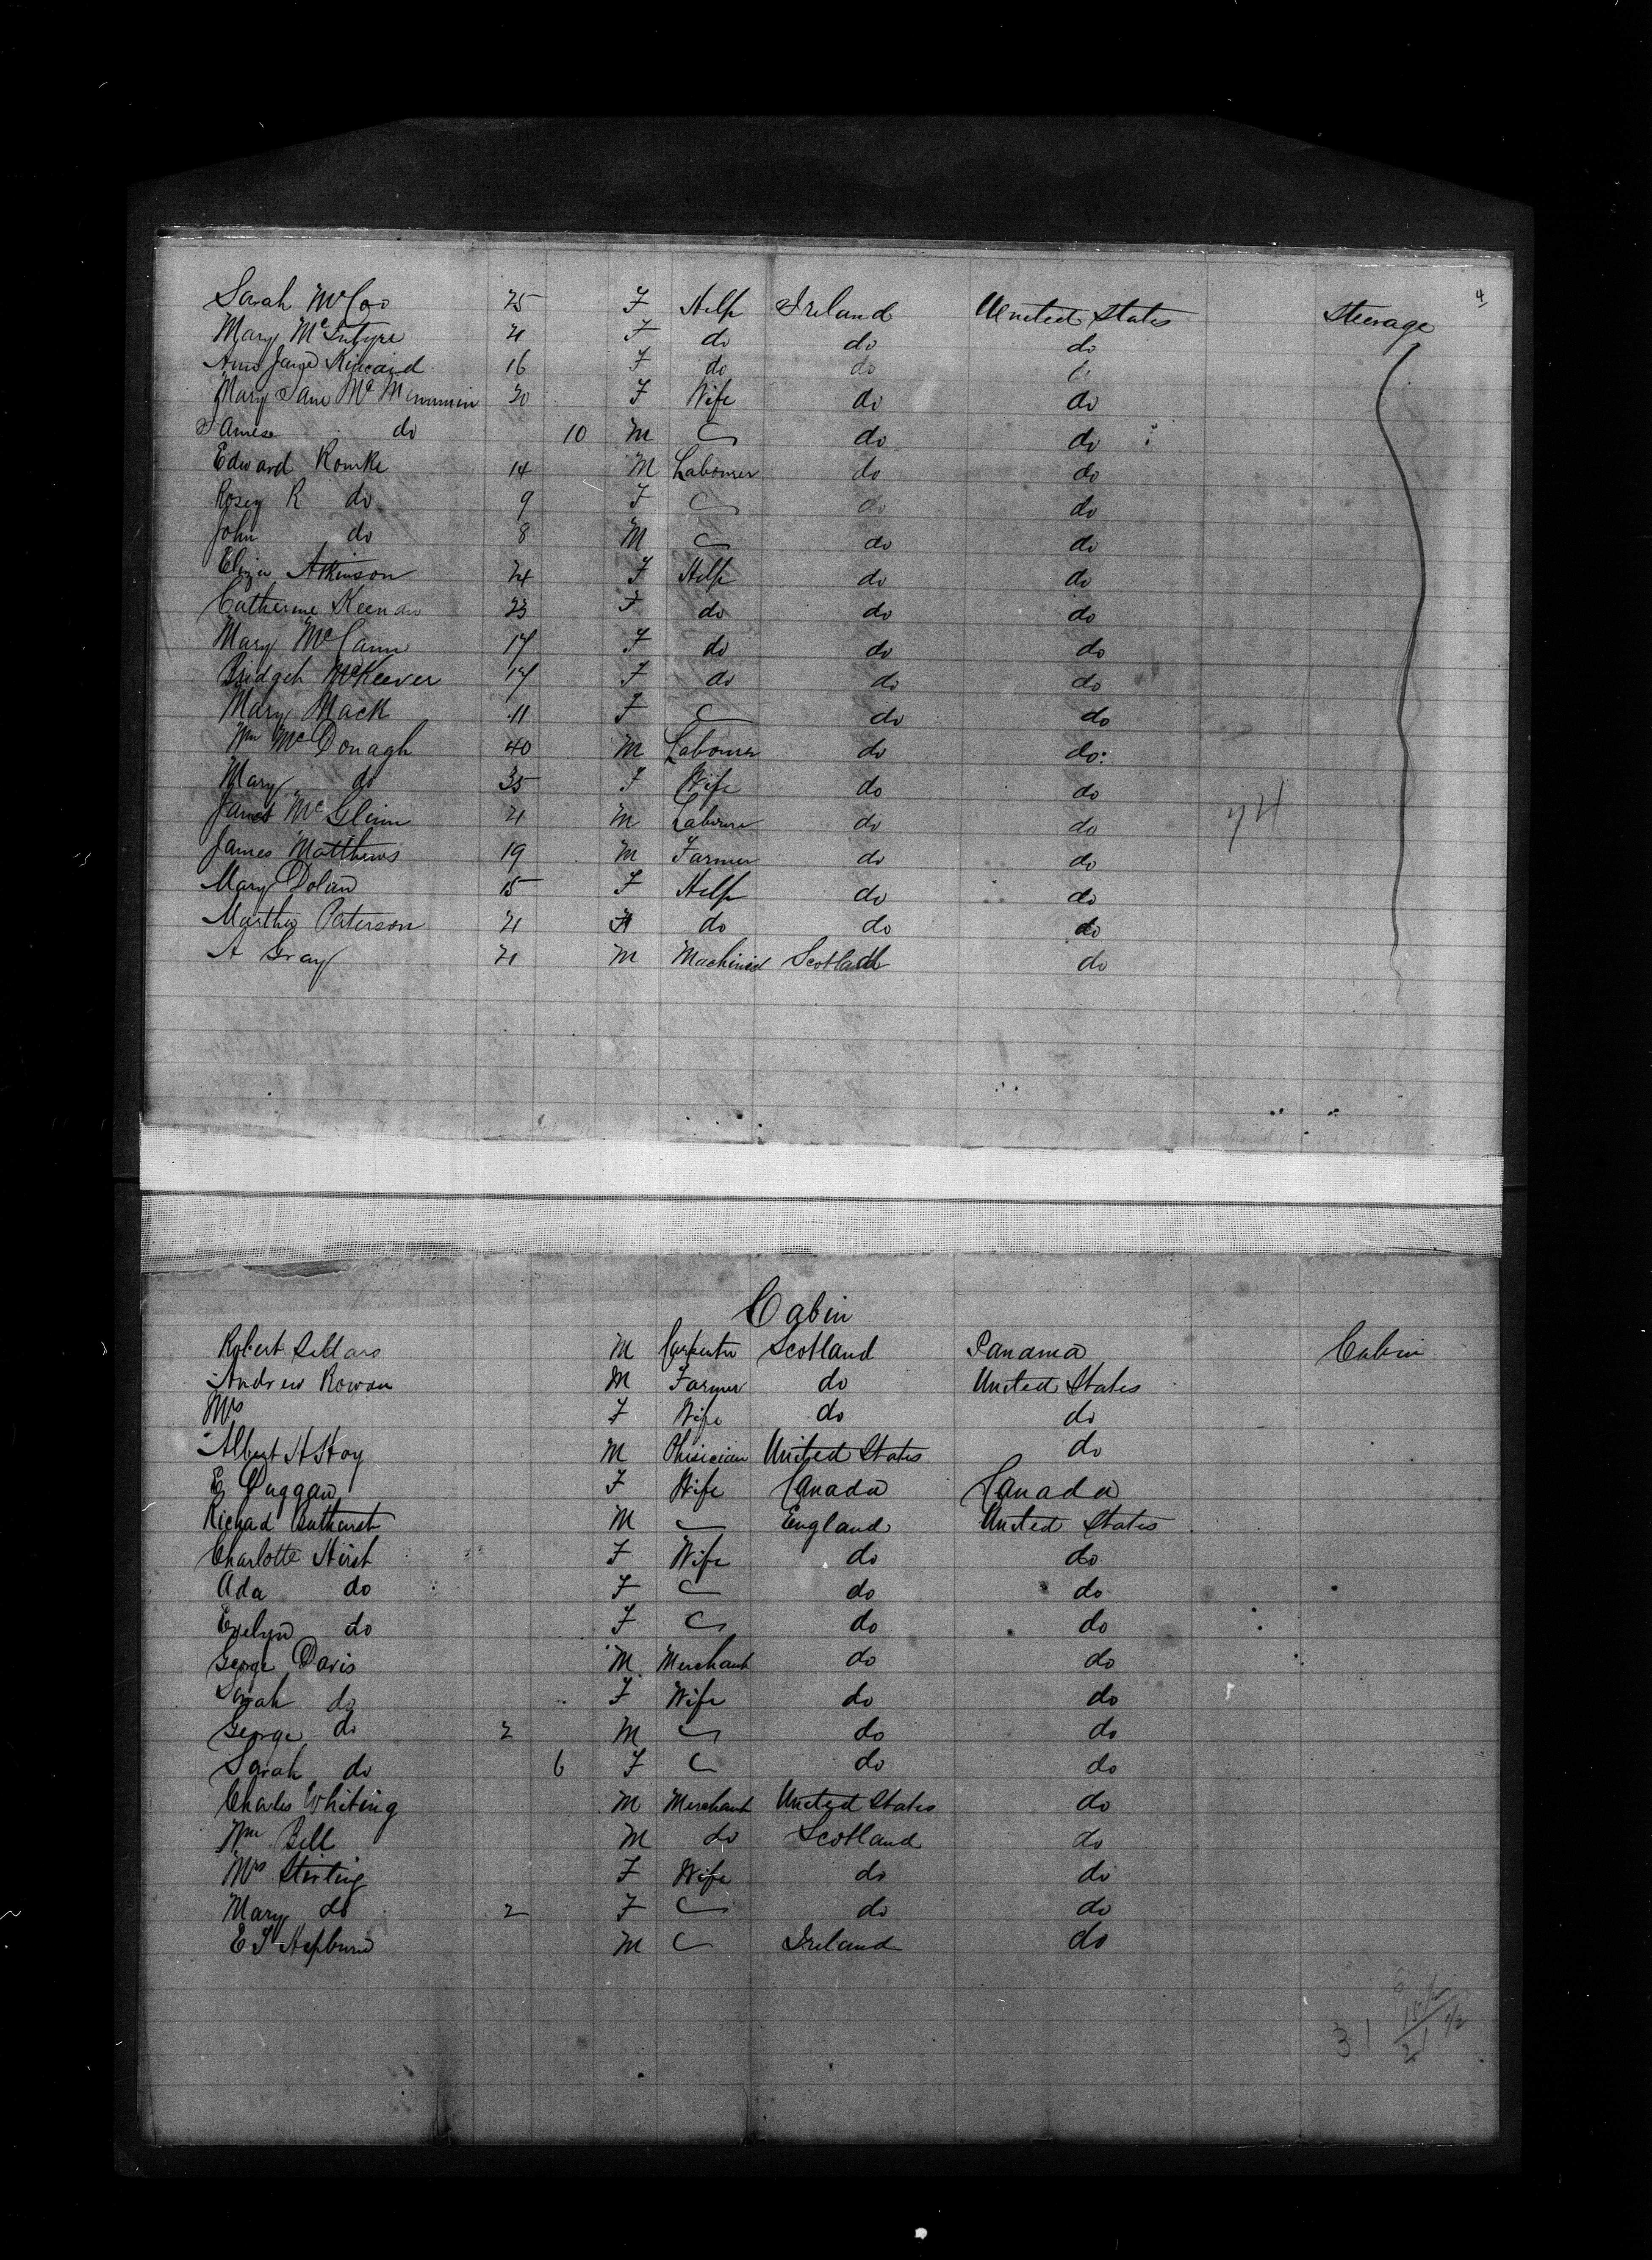 4
Sarah McCoo 25 F Help Ireland United States Steerage
Mary McIntyre 21 F do do do
Ann Jane Kincaid 16 F do do
Mary Jane Mc 20 F Wife do do
James do 10 M do do
Edward Rourke 14 M Labourer do do
Rosey R do 9 F do do
John do 8 M do do
Eliza Atkinson 24 F Help do do
Catherine Keenan 23 F do do do
Mary McCann 17 F do do do
Bridget McKeever 17 F do do do
Mary Mack 11 F do do
Wm McDonagh 40 M Labourer do do
Mary do 35 F Wife do do
McGlinn 21 M Labourer do do
James Matthews 19 M Farmer do do
Mary Dolan 15 F Help do do
Martha Paterson 21 do do do
A Gray 21 M Machinist Scotland do
Cabin
Robert Sellars M Carpenter Scotland Panama Cabin
Andrew Rowan M Farmer do United States
Mrs F Wife do do
Albert H Hoy M Phisician United States do
E Duggan F Wife Canada Canada
Richard Bathurst M England United States
Charlotte Hirst F Wife do do
Ada do F do do
Evelyn do F do do
George Davis M Merchant do do
Sarah do F Wife do do
George do 2 M do do
Sarah do 6 F do do
Charles Whiting M Merchant United States do
Wm Bell M do Scotland do
Mrs Stirling F Wife do do
Mary do 2 F do do
E S Hepburn M Ireland do
31